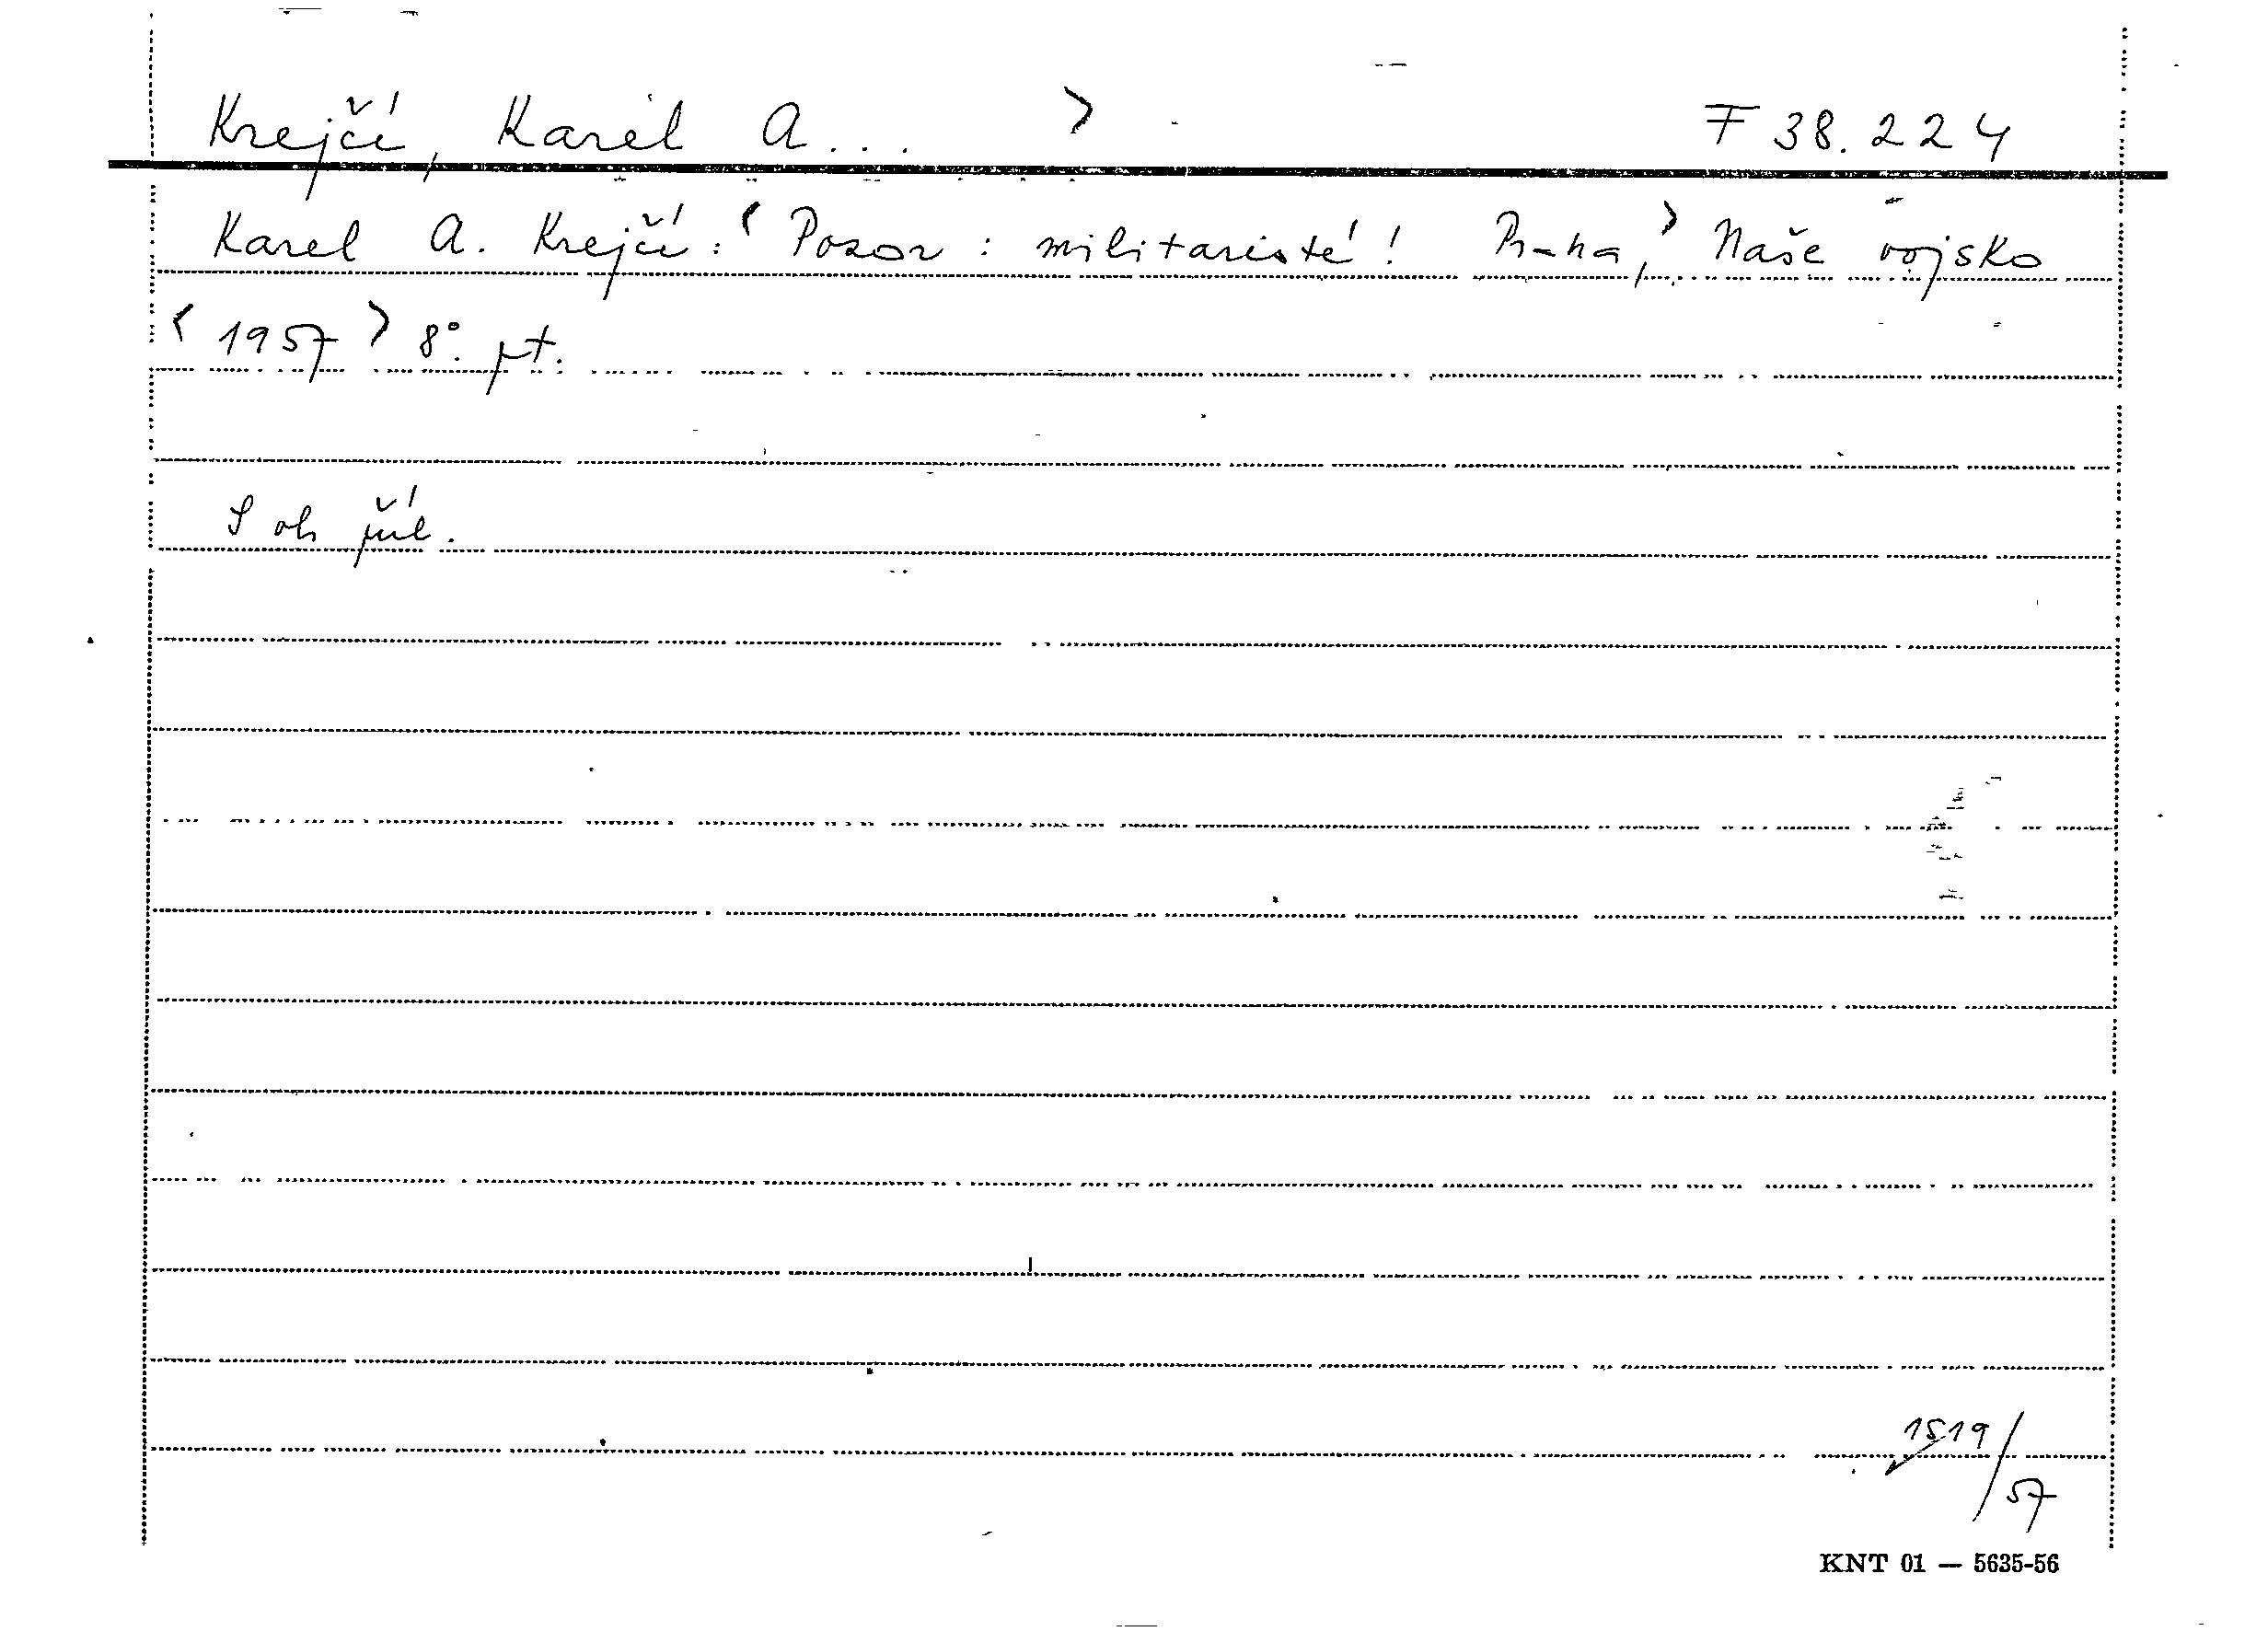 Krejčí, Karel A... > F 38.224
Karel A. Krejčí: < Pozor: militaristé! Praha, > Naše vojsko
< 1957 > 8°. pt.
S ob příl.
1519/57
KNT 01 — 5635-56